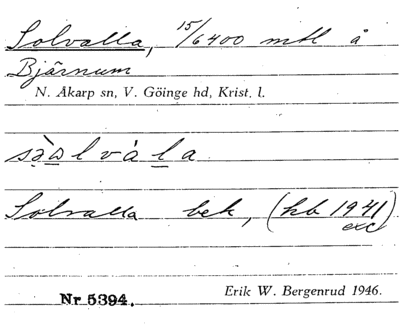 Solvalla, 15/6400 mtl å
Bjärnum
N. Åkarp sn, V. Göinge hd, Krist. l.
Solvalla bek, (kb 1941)
exc
Nr 5394. Erik W. Bergenrud 1946.